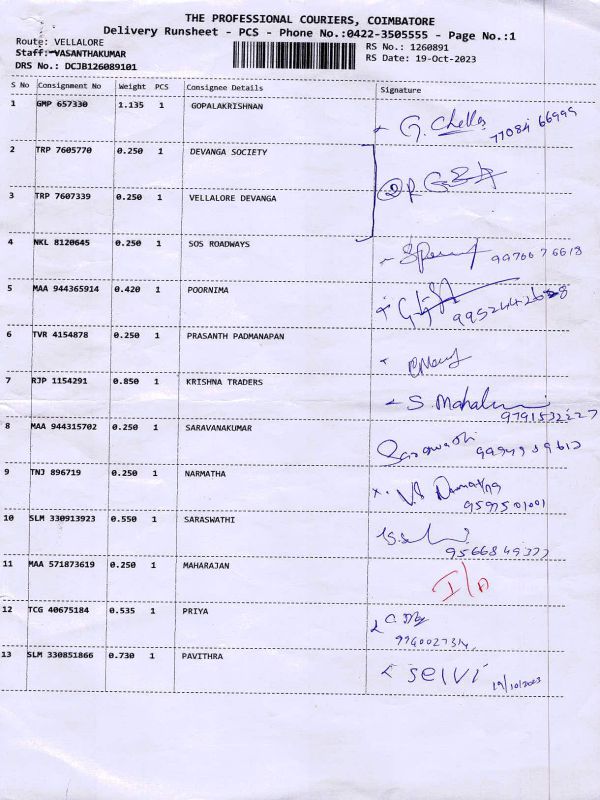 THE PROFESSIONAL COURIERS, COIMBATORE
Delivery Runsheet - PCS - Phone No.:0422-3505555 - Page No.:1
Route: VELLALORE
RS No.: 1260891
Staff: VASANTHAKUMAR
RS Date: 19-Oct-2023
DRS No.: DCJB126089101
S No Consignment No Weight PCS Consignee Details Signature
1 GMP 657330 1.135 1 GOPALAKRISHNAN
77084 66999
2 TRP 7605770 0.250 1 DEVANGA SOCIETY
3 TRP 7607339 0.250 1 VELLALORE DEVANGA
4 NKL 8120645 0.250 1 SOS ROADWAYS
9976676618
5 MAA 944365914 0.420 1 POORNIMA
6 TVR 4154878 0.250 1 PRASANTH PADMANAPAN
7 RJP 1154291 0.850 1 KRISHNA TRADERS
S. Mahalumi
8 MAA 944315702 0.250 1 SARAVANAKUMAR
Saraswathi
9 TNJ 896719 0.250 1 NARMATHA
9597501001
10 SLM 330913923 0.550 1 SARASWATHI
11 MAA 571873619 0.250 1 MAHARAJAN
12 TCG 40675184 0.535 1 PRIYA
13 SLM 330851866 0.730 1 PAVITHRA
selvi 19/10/2023